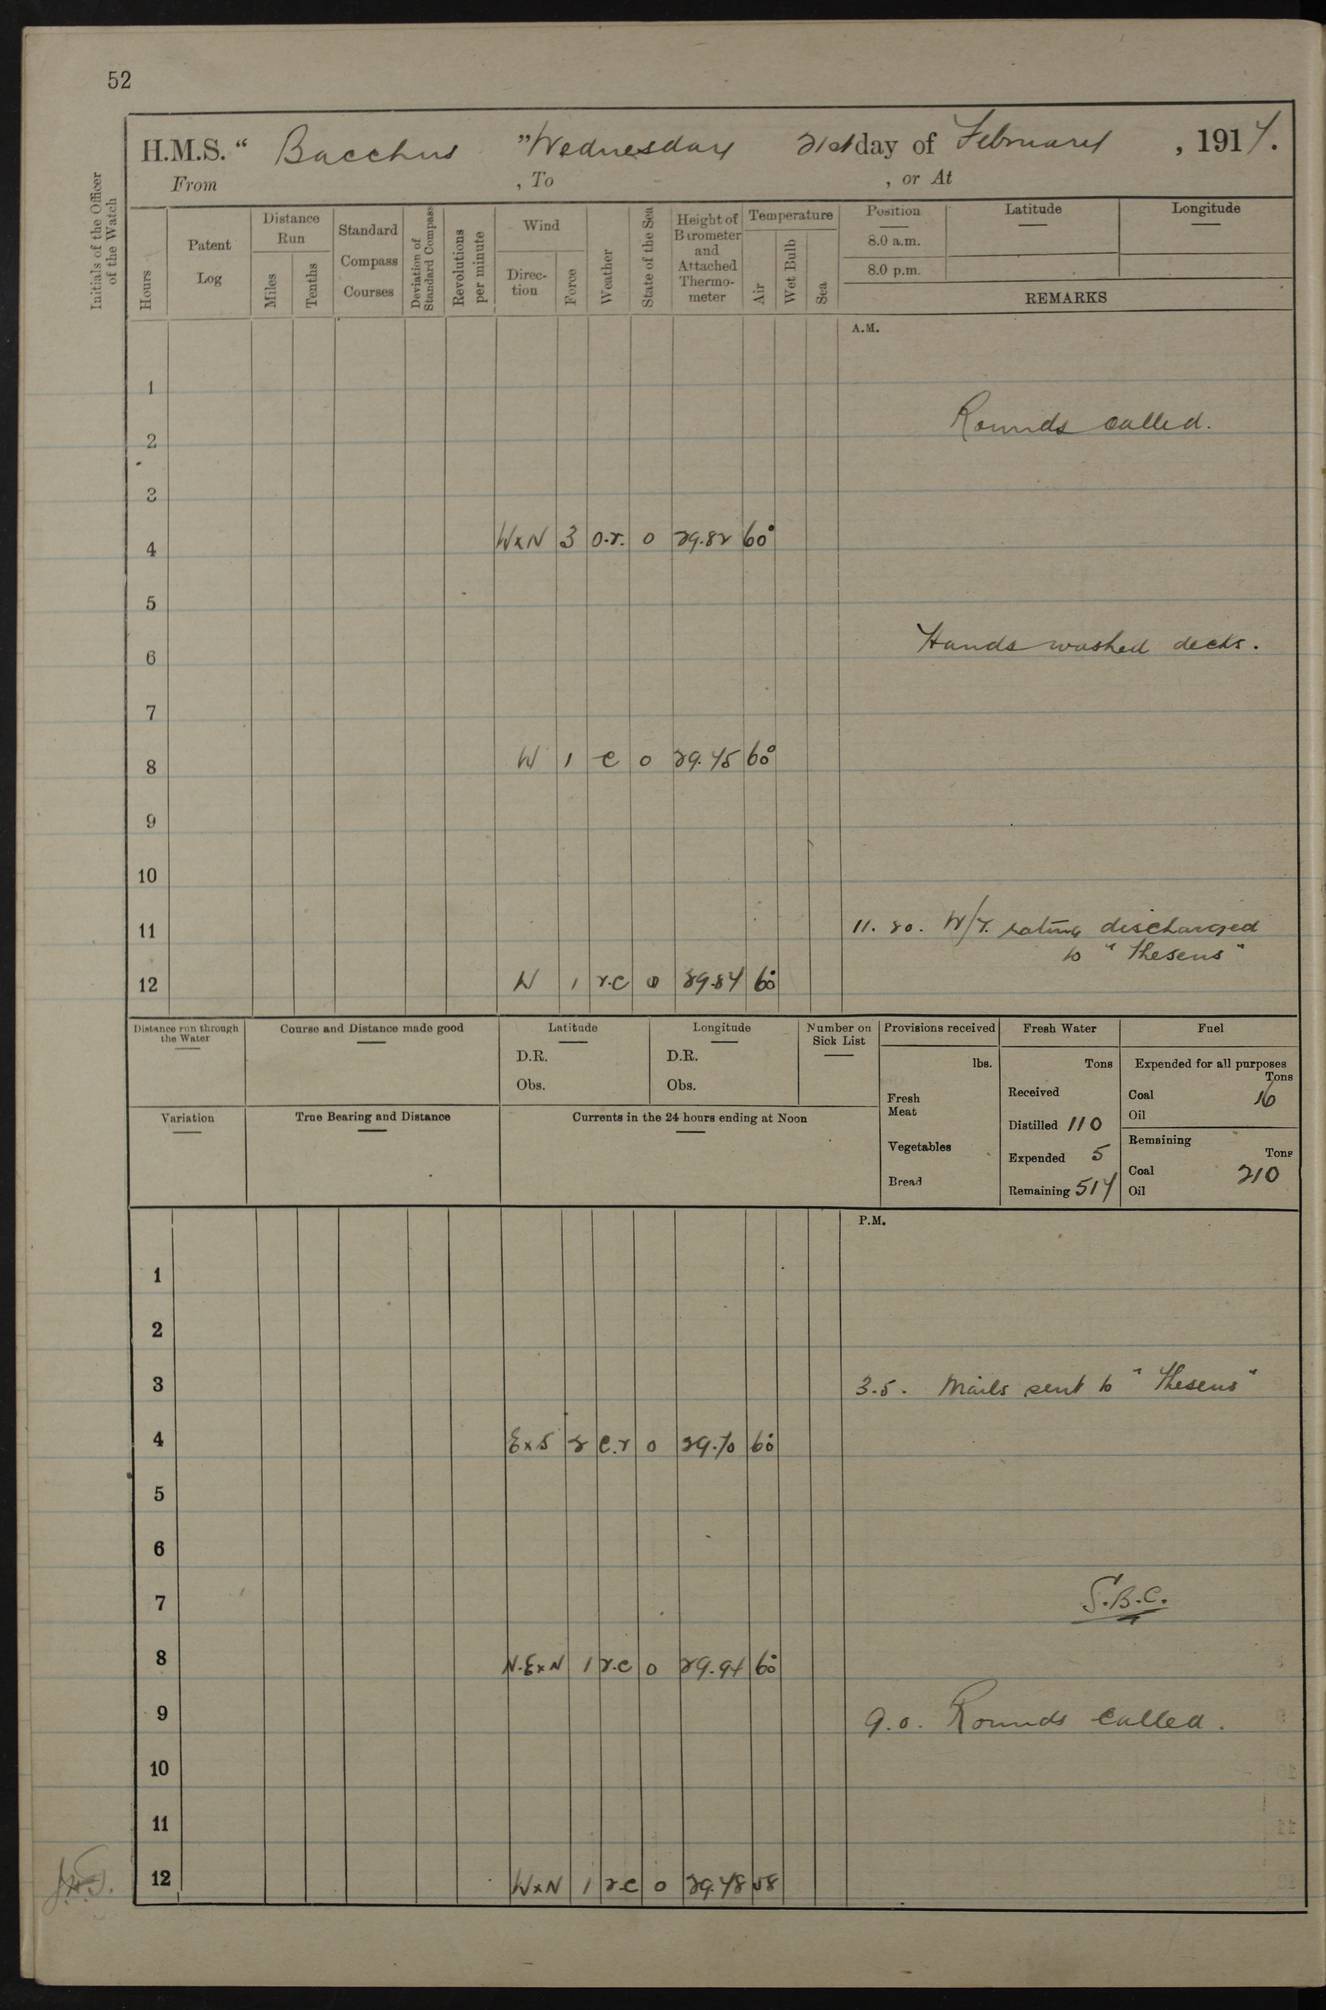 52
H.M.S. “ Bacchus ” Wednesday 21st day of February , 1917.
From , To , or At
Initials of the Officer of the Watch
Hours
Patent Log
Distance Run
Miles
Tenths
Standard Compass Courses
Deviation of Standard Compass
Revolutions per minute
Wind
Direc-tion
Force
Weather
State of the Sea
Height of Barometer and Attached Thermo-meter
Temperature
Air
Wet Bulb
Sea
Position Latitude Longitude
8.0 a.m.
8.0 p.m.
REMARKS
A.M.
1
Rounds called.
2
3
4 WxN 3 o.r. 0 29.82 60°
5
Hands washed decks.
6
7
8 W 1 c 0 29.75 60°
9
10
11 11.20. W/T. rating discharged
to “Theseus”
12 N 1 r.c 0 29.84 60°
Distance run through the Water
Course and Distance made good
Latitude
D.R.
Obs.
Longitude
D.R.
Obs.
Number on Sick List
Provisions received
lbs.
Fresh Meat
Vegetables
Bread
Fresh Water
Tons
Received
Distilled 110
Expended 5
Remaining 517
Fuel
Expended for all purposes
Tons
Coal 16
Oil
Remaining
Tons
Coal 210
Oil
Variation
True Bearing and Distance
Currents in the 24 hours ending at Noon
P.M.
1
2
3 3.5. Mails sent to “Theseus”
4 ExS 2 c.r 0 29.70 60°
5
6
7 S.B.C.
8 N.ExN 1 r.c 0 29.94 60°
9 9.0. Rounds called.
10
11
12 WxN 1 r.c 0 29.78 58